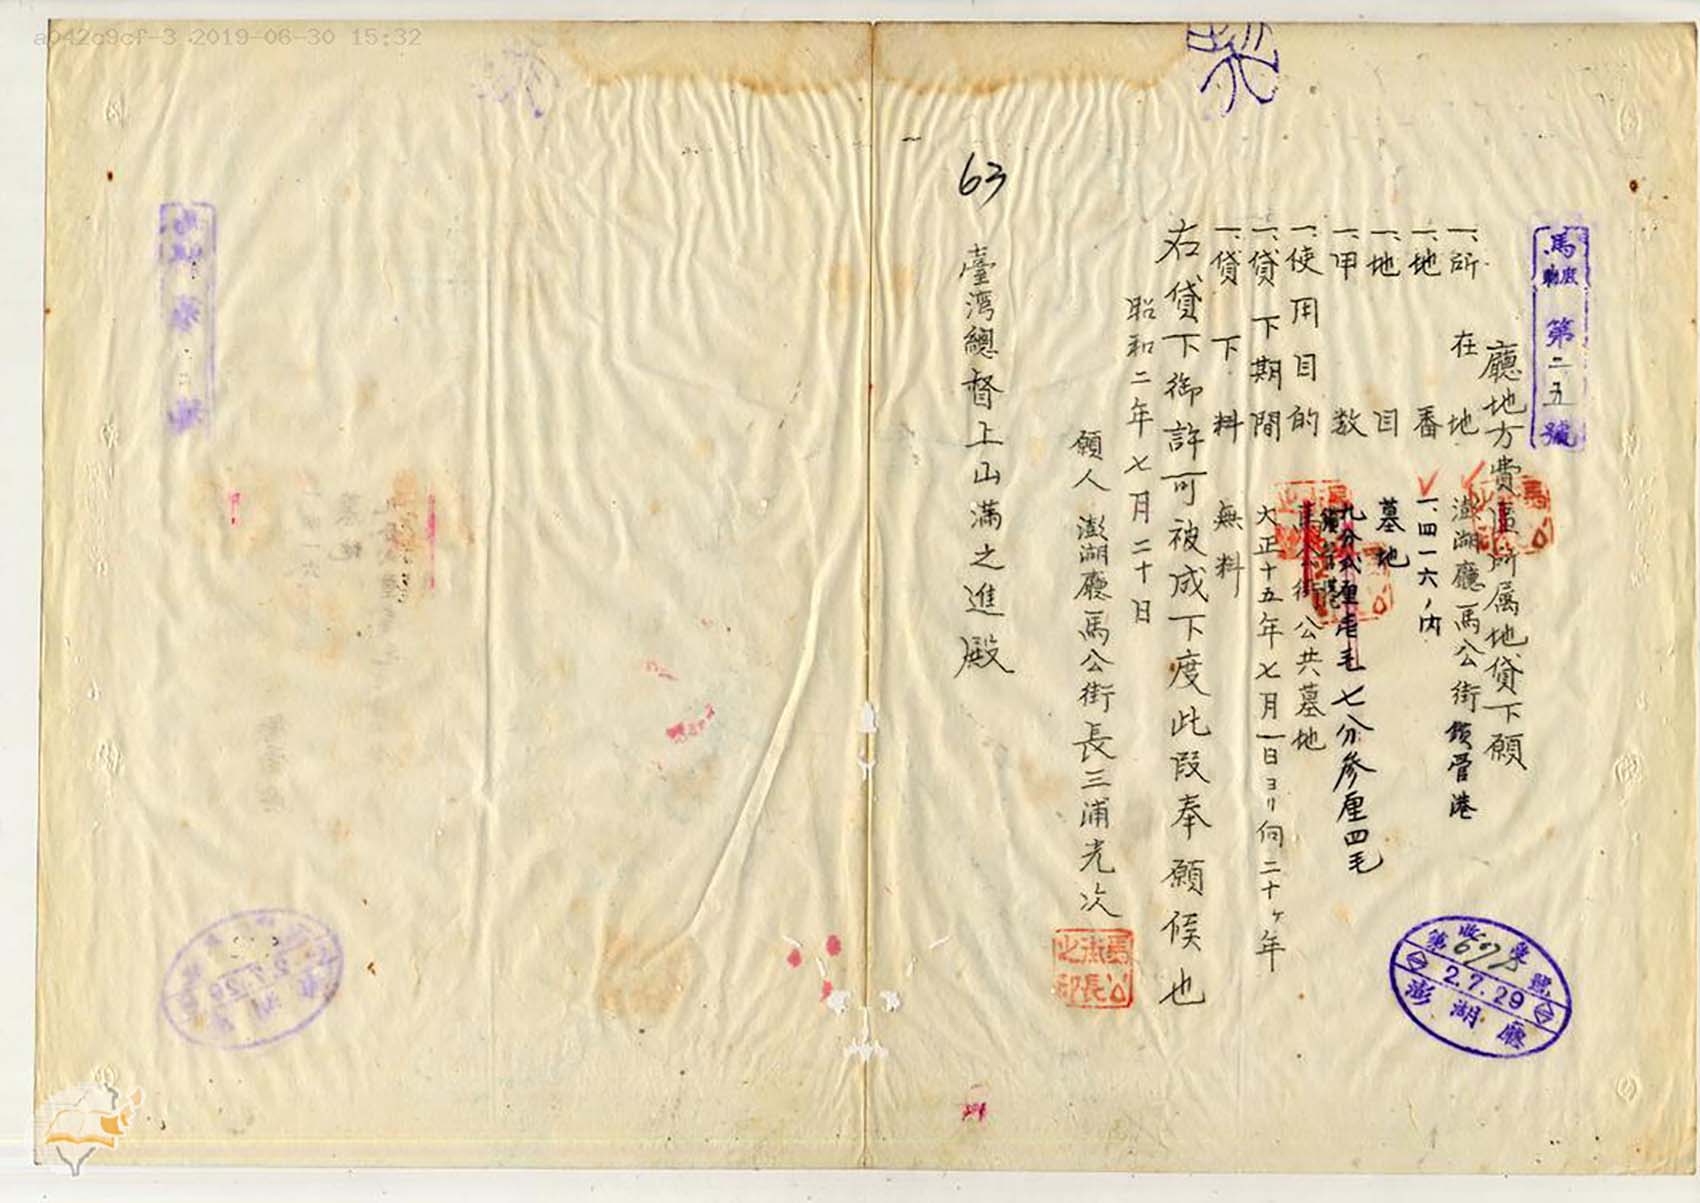 ab42c9cf-3 2019-06-30 15:32
馬庶 第二五號
廳地方費區所属地貸下願
一、所在地 澎湖廳馬公街鎖管港
一、地番 一、四一六ノ内
一、地目 墓地
一、甲数 七分参厘四毛
一、使用目的 馬公街公共墓地
一、貸下期間 大正十五年七月一日ヨリ向二十ヶ年
一、貸下料 無料
右貸下御許可被成下度此段奉願候也
昭和二年七月二十日
願人 澎湖廳馬公街長三浦光次
馬公街長之印
臺湾總督上山満之進殿
63
收受
第 號
2.7.29
澎湖廳